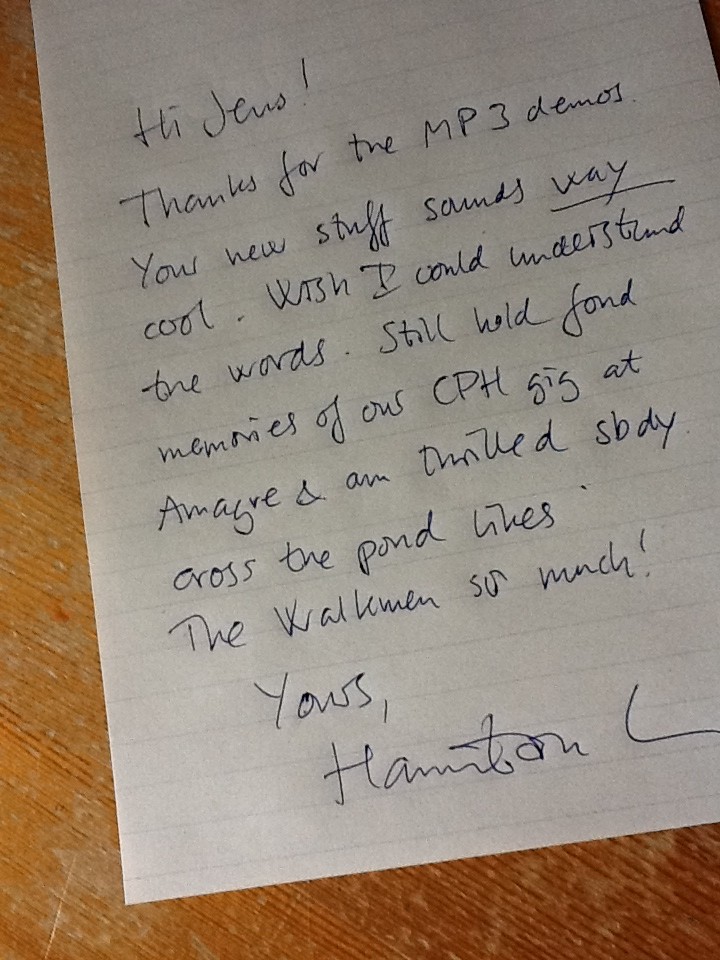 Hi Jens!
Thanks for the MP3 demos.
Your new stuff sounds way
cool. Wish I could understand
the words. Still hold fond
memories of our CPH gig at
Amagre & am thrilled sbdy.
cross the pond likes
The Walkmen so much!
Yours,
Hamilton L